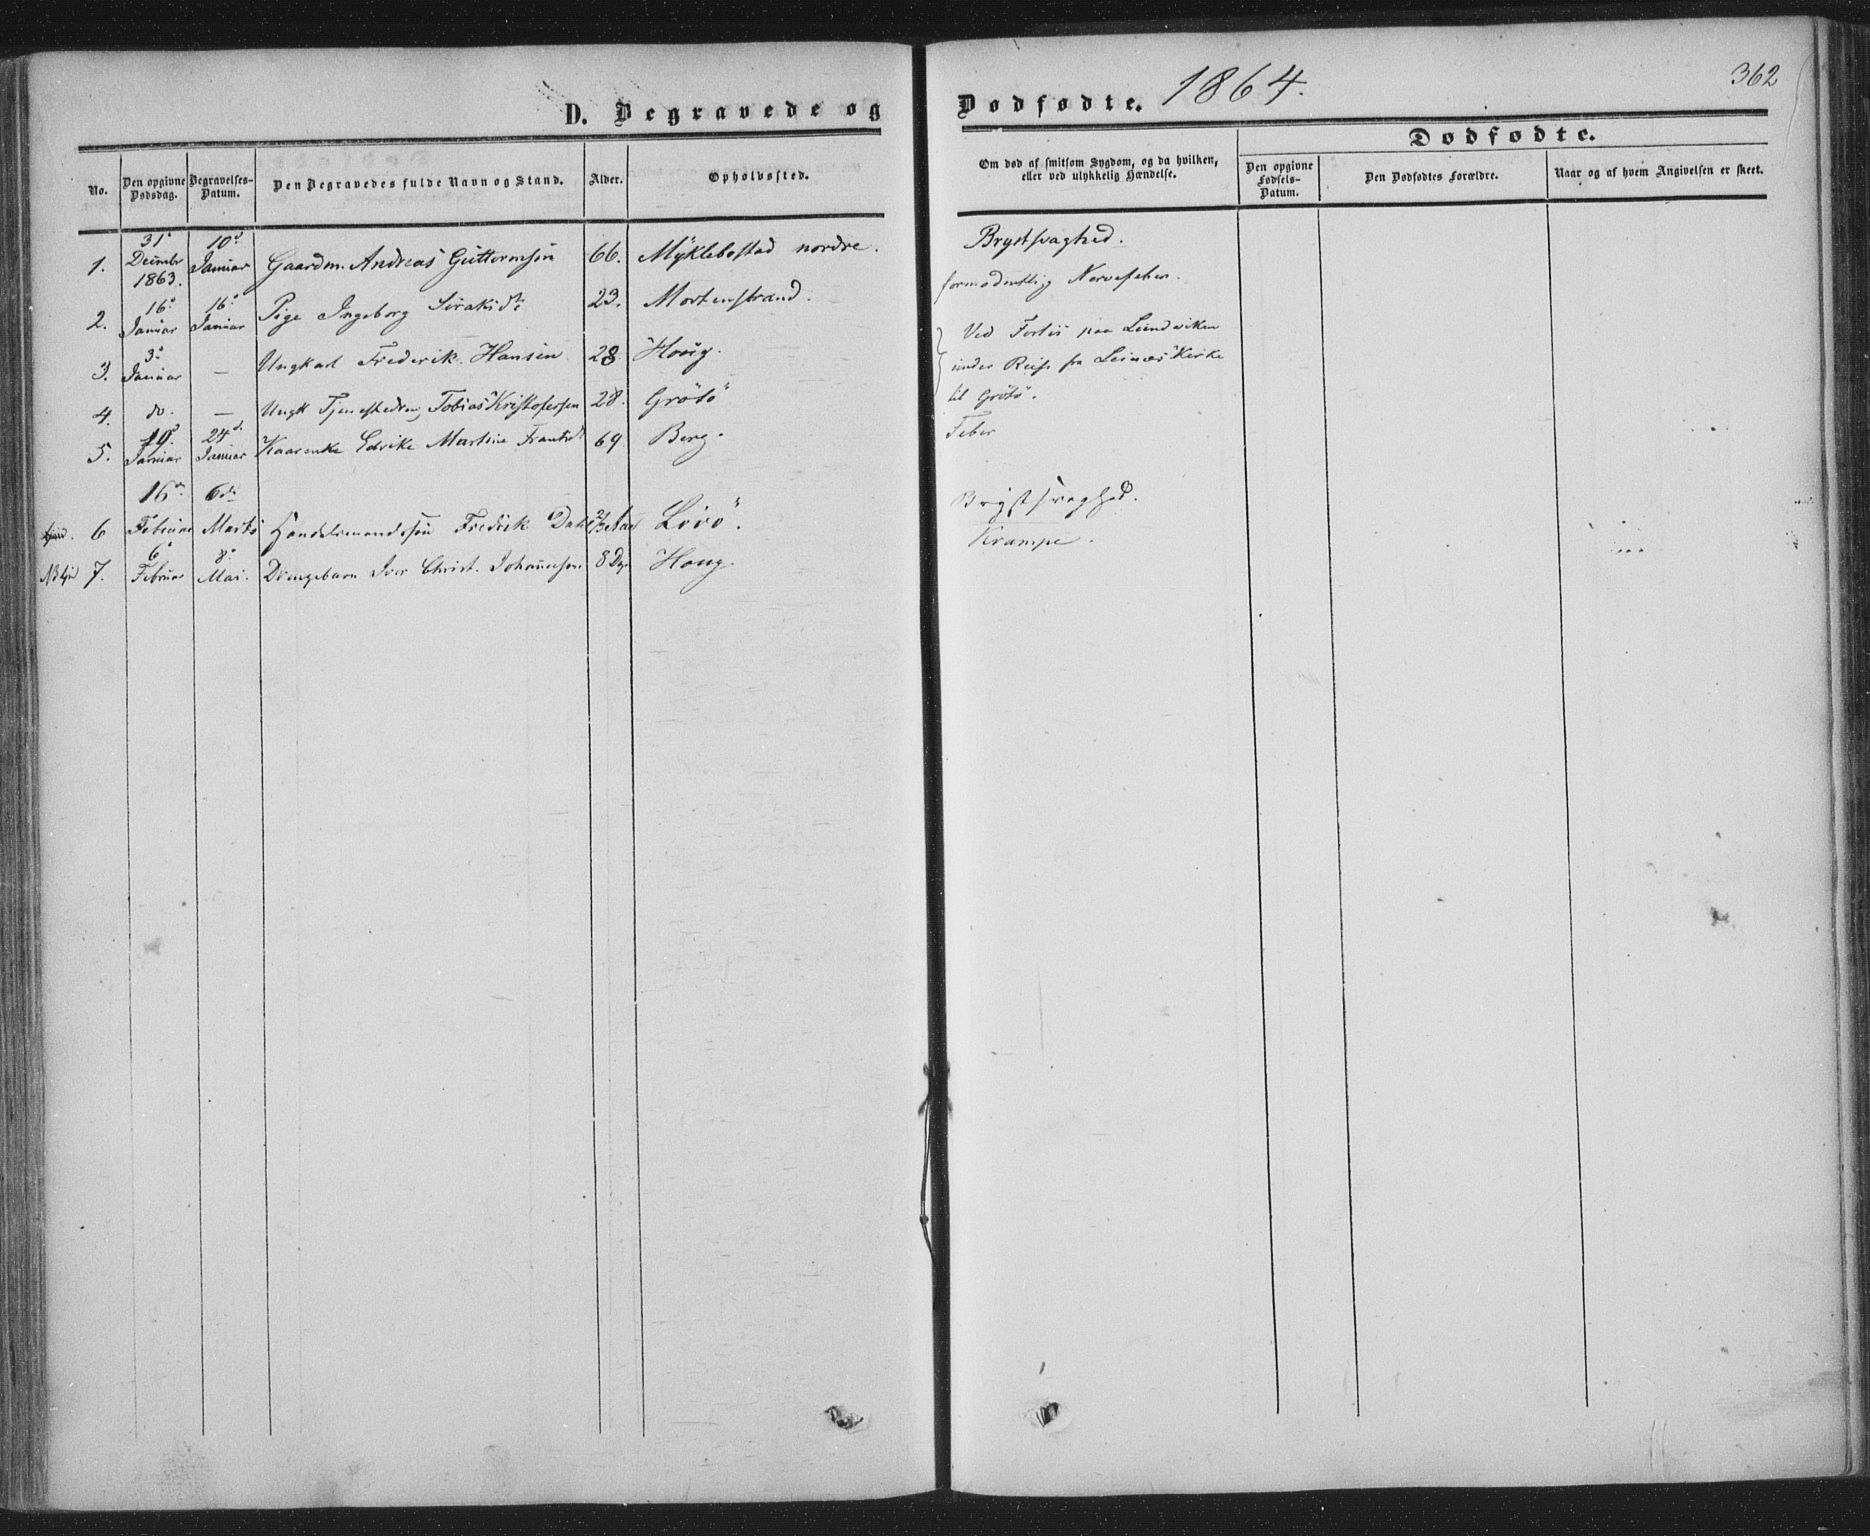 D. Begravede og Dødfødte. 1864.
362
Dødfødte.
No.
Den opgivne Dødsdag.
Begravelses-Datum.
Den Begravedes fulde Navn og Stand.
Alder.
Opholdssted.
Om død af smitsom Sygdom, og da hvilken, eller ved ulykkelig Hændelse.
Den opgivne Fødsels-Datum.
Den Dødfødtes Forældre.
Naar og af hvem Angivelsen er skeet.
1. 31' Decembr 1863. 10d Januar Gaardm. Andreas Guttormsen 66. Myklebostad nordre. Brystsvaghed.
2. 16' Januar 16' Januar Pige Ingeborg 23. Mortenstrand. formodentlig Nervefeber.
3. 3' Januar — Ungkarl Frederik Hansen 28 Houg. Ved Forliis paa Lundviken
under Reise fra Leines Kirke
4. do. — Ungk Tjenestedreng Tobias Kristofersen 28. Grötö til Grötö.
5. 19d Januar 24d. Januar Martine 69 Berg. Feber
6 16de Februar 6de Marts Handelsmandssøn Fredrik Dahl Lövö. Brystsvaghed.
7. 6' Februar 8' Mai. Drengebarn Iver Christ. Johannesen 8 Dg. Houg. Krampe.